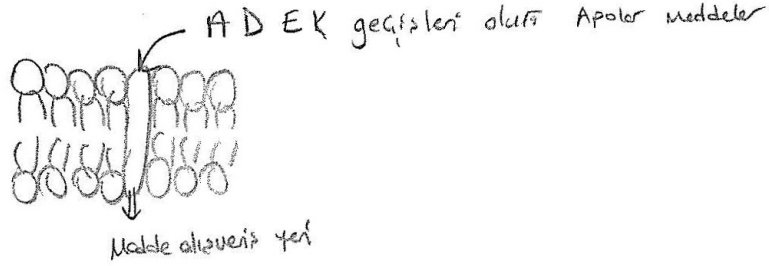 A D E K geçişleri olur Apolar Maddeler
Madde alışveriş yeri